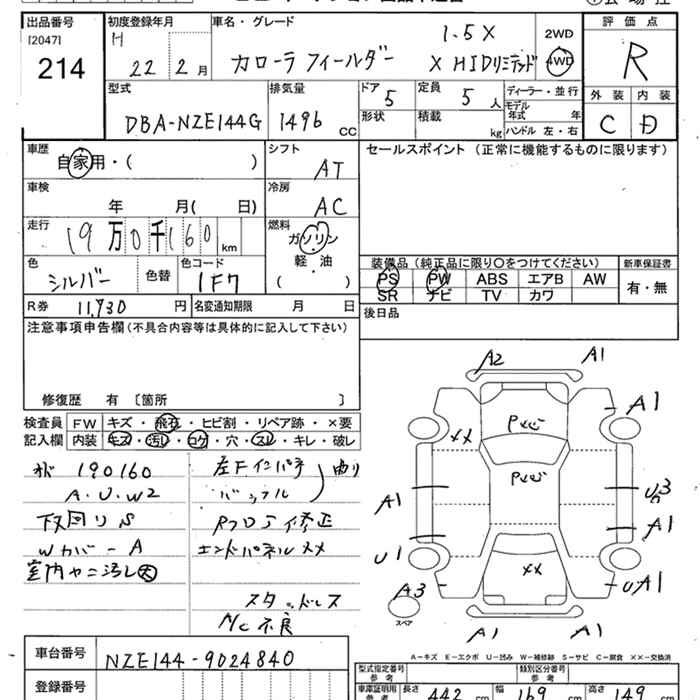 出品番号
[2047]
214
初度登録年月
H 22 2 月
車名・グレード
カローラフィールダー
1.5X
X HIDリミテッド
2WD
4WD
評価点
R
外装 内装
C D
型式
DBA-NZE144G
排気量
1496 CC
ドア 5
定員 5 人
形状
積載 kg
ディーラー・並行
モデル年式 年
ハンドル 左・右
車歴
自家用・( )
シフト
AT
セールスポイント (正常に機能するものに限ります)
車検
年 月( 日)
冷房
AC
走行
19万0千160 km
燃料
ガソリン
軽・油
( )
色
シルバー
色替
色コード
1F7
装備品 (純正品に限り○をつけてください)
新車保証書
PS PW ABS エアB AW
有・無
SR ナビ TV カワ
R券 11,930 円
名変通知期限 月 日
後日品
注意事項申告欄 (不具合内容等は具体的に記入して下さい)
修復歴 有 [箇所 ]
検査員記入欄
FW キズ・飛石・ヒビ割・リペア跡・×要
内装 キズ・汚レ・コゲ・穴・スレ・キレ・破レ
190160
A.U.W2
下回りS
Wカバー A
室内ヤニ汚レ大
左Fインパネ
曲り
修正
エンドパネルXX
スタッドレス
A/C不良
A2 A1
A1
XX
A1
A1
U1
U1
A3
スペア
XX
A1 A1
A-キズ E-エクボ U-凹み W-補修跡 S-サビ C-腐食 XX-交換済
車台番号
NZE144-9024840
登録番号
型式指定番号 参考
類別区分番号 参考
車庫証明用 参考
長さ 442 cm
幅 169 cm
高さ 149 cm